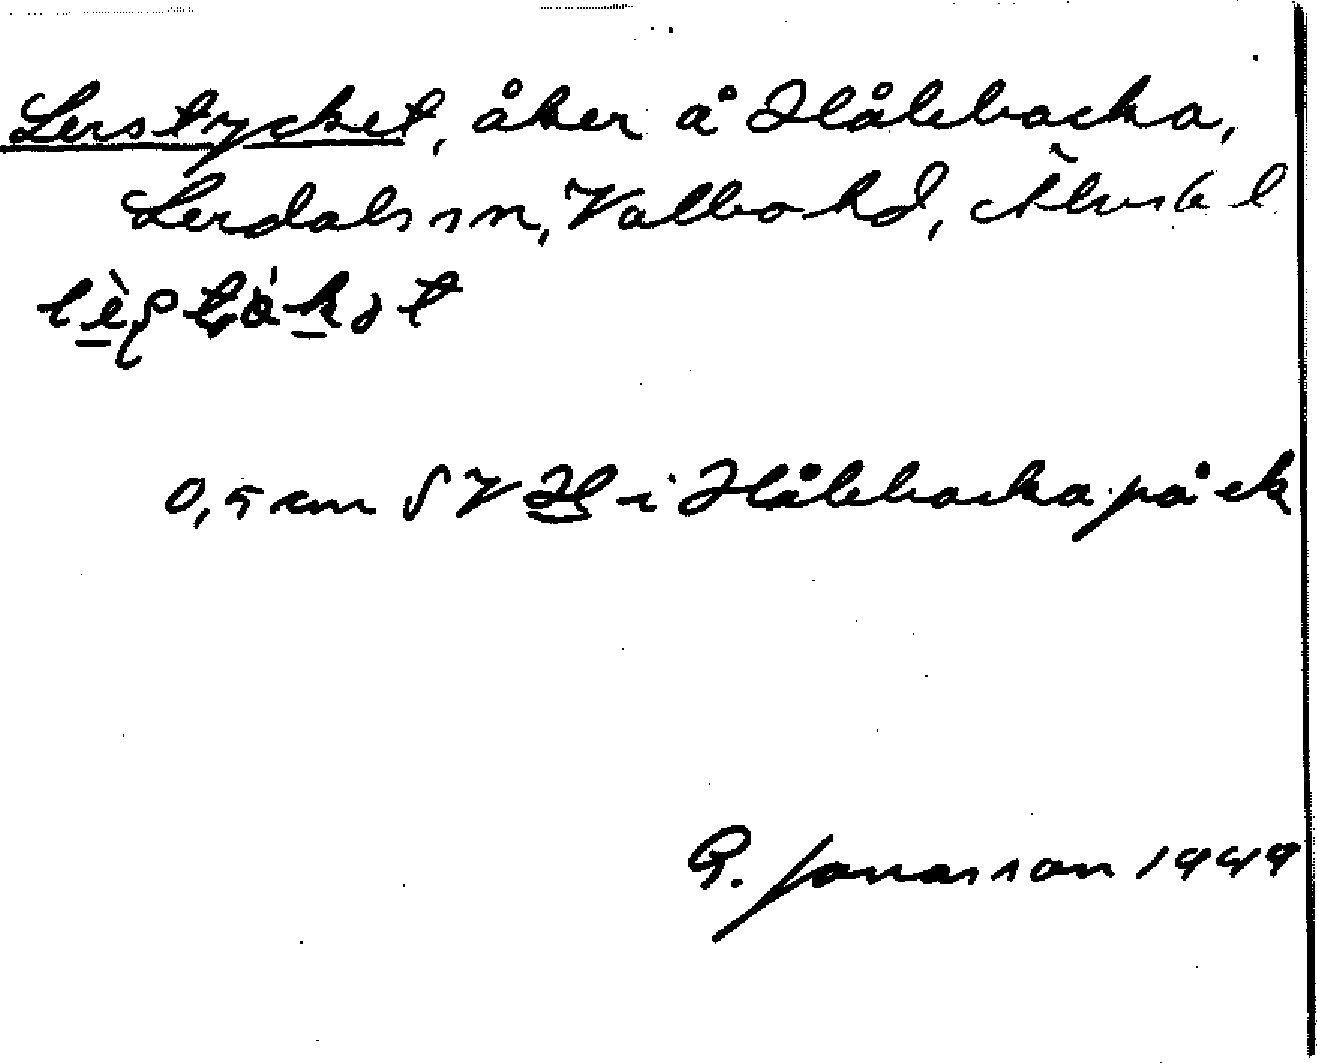 Lerstycket, åker å Hålebacka,
Lerdals sn, Valbo hd, Älvsb l
0,5 cm SV H i Hålebacka på ek
G. Jonasson 1949